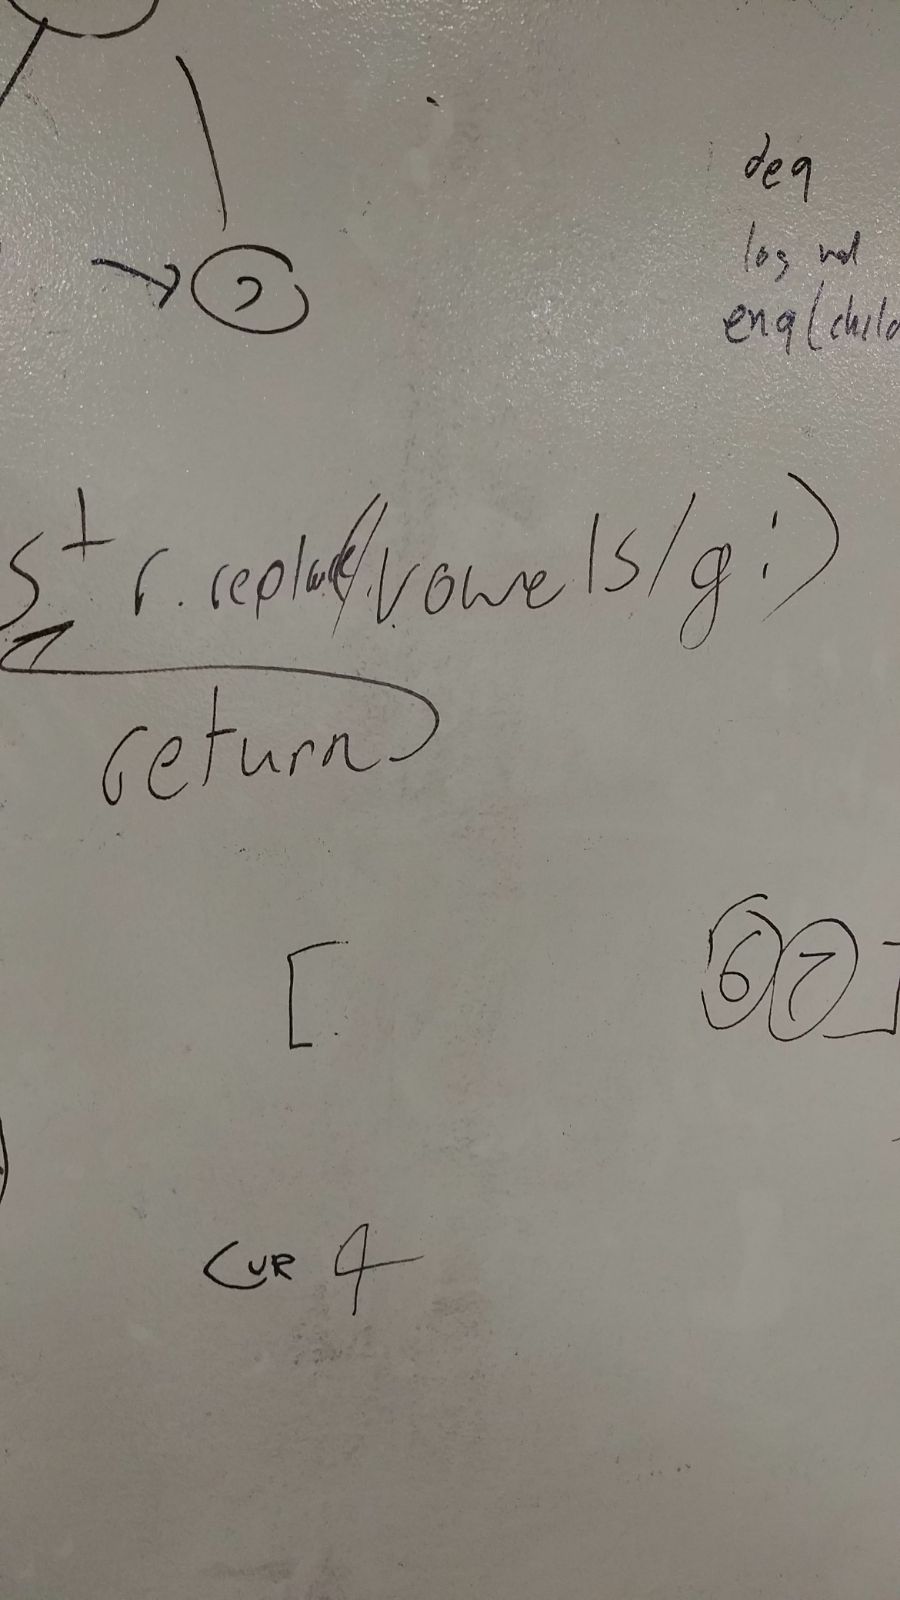 deq
log val
enq(child
str.replace(/vowels/gi)
return
[ 6 7 ]
CUR 4